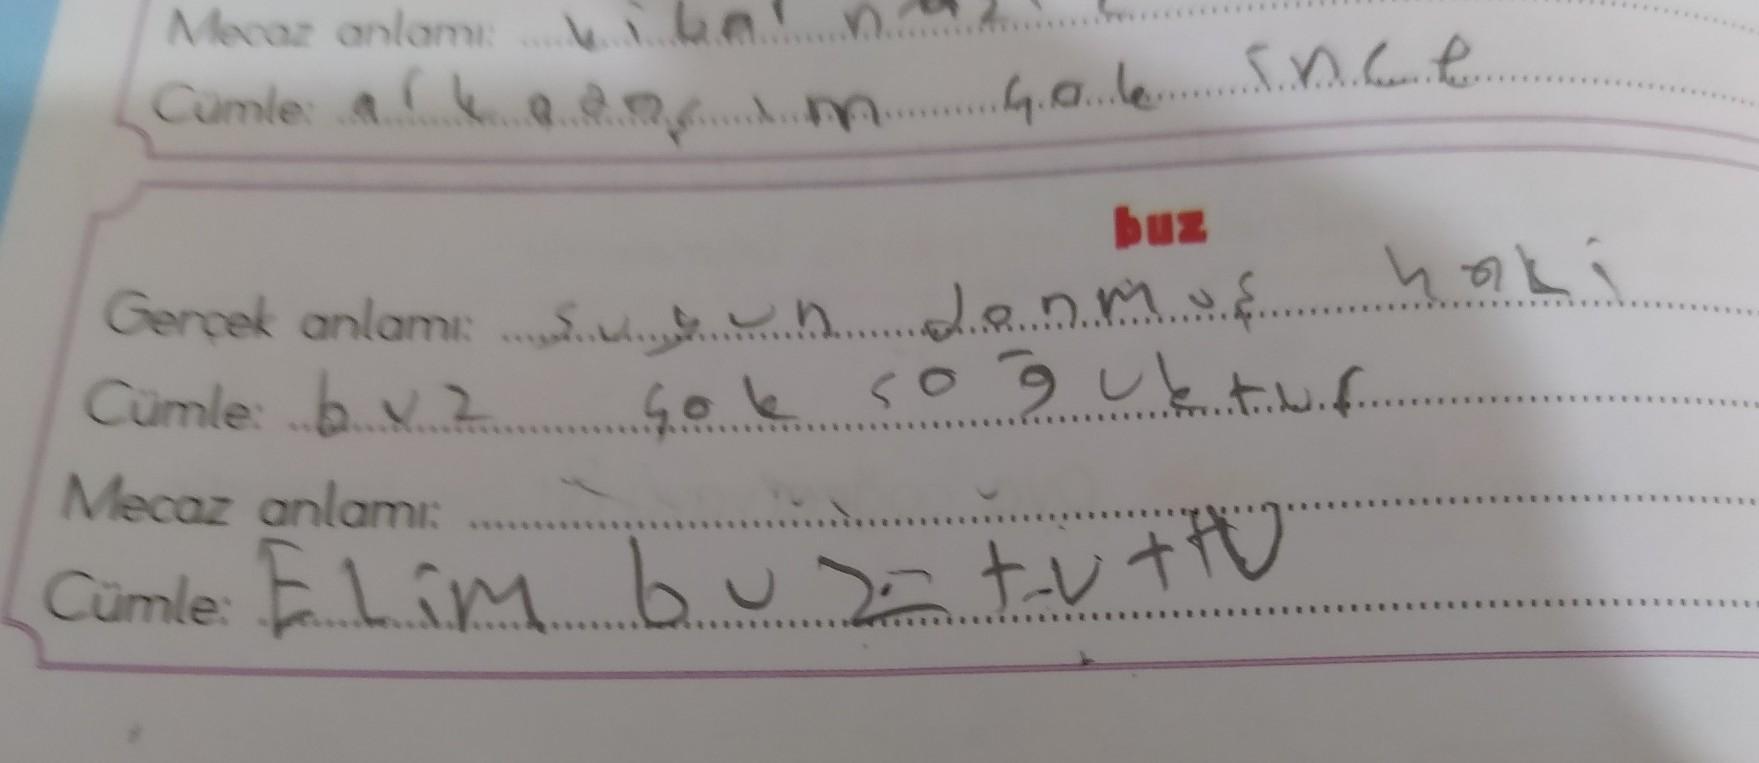 Mecaz anlamı: kibar
Cümle: arkadaşım çok ince
buz
Gerçek anlamı: suyun donmuş haki
Cümle: buz çok soğuktur
Mecaz anlamı:
Cümle: Elim buz tuttu